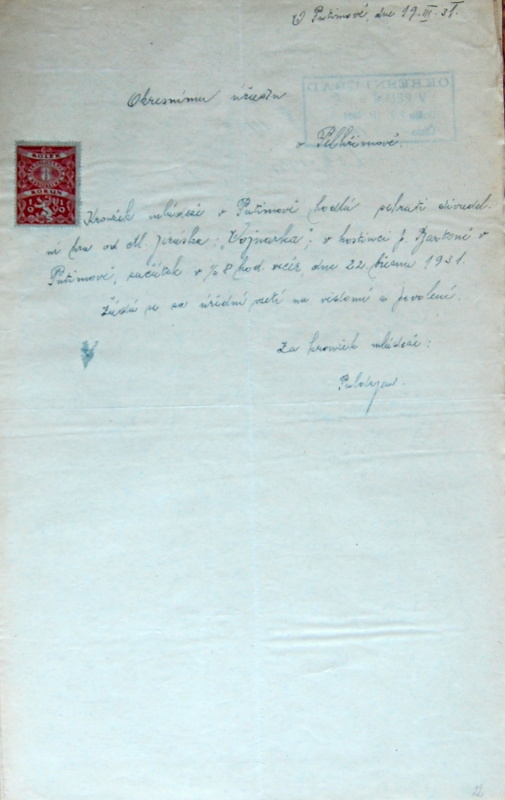 V Putimově, dne 19.III.31.
Okresnímu úřadu
v Pelhřimově.
KOLEK
1
KORUN
Kroužek mládeže v Putimově hodlá sehrati divadel-
ní hru od Al. Jiráska, "Vojnarka", v hostinci J. v
Putimově, začátek v ½8 hod. večer, dne 22. března 1931.
Žádá se za úřední vzetí na vědomí a povolení.
Za kroužek mládeže: